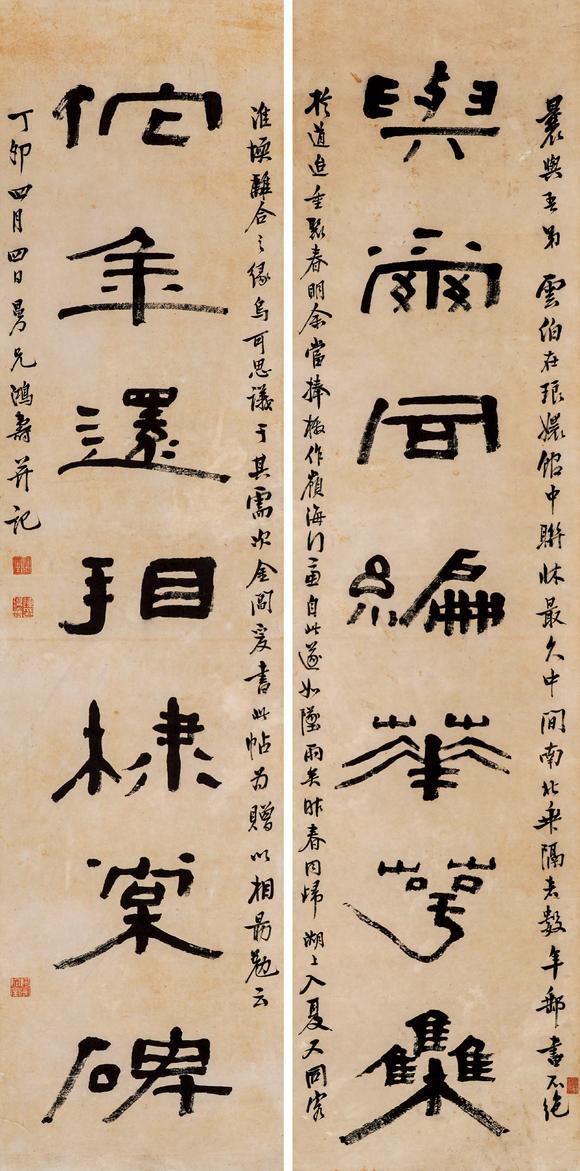 曩與吾弟雲伯在琅嬛館中聯牀最久中間南北乖隔者數年郵書不絕
與爾同編華萼集
於道迨重聚春明余當捧檄作嶺海行意自此遂如墜雨矣昨春同歸湖上入夏又同客
淮壖離合之緣烏可思議于其需次金閶爰書此帖為贈以相勗勉云
佗年還看棣棠碑
丁卯四月四日曼兄鴻壽并記